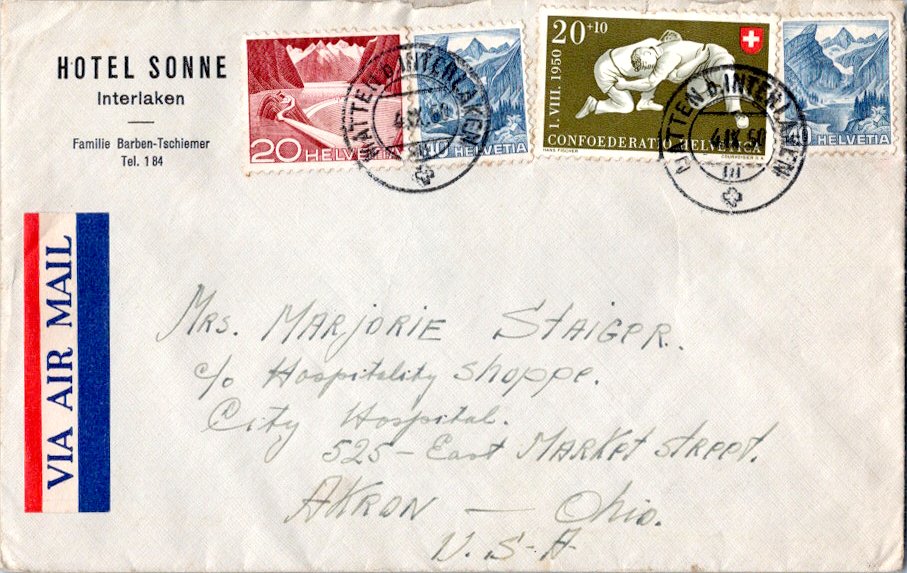 HOTEL SONNE
Interlaken
Familie Barben-Tschiemer
Tel. 184
20 HELVETIA
HELVETIA
20+10
1. VIII. 1950
CONFOEDERATIO HELVETICA
HANS FISCHER
COURVOISIER S.A.
MATTEN b. INTERLAKEN
4.IX.50
MATTEN b. INTERLAKEN
4.IX.50
VIA AIR MAIL
Mrs. MARJORIE STAIGER.
c/o Hospitality Shoppe.
City Hospital.
525 - East MARKET STREET.
AKRON — Ohio.
U.S-A